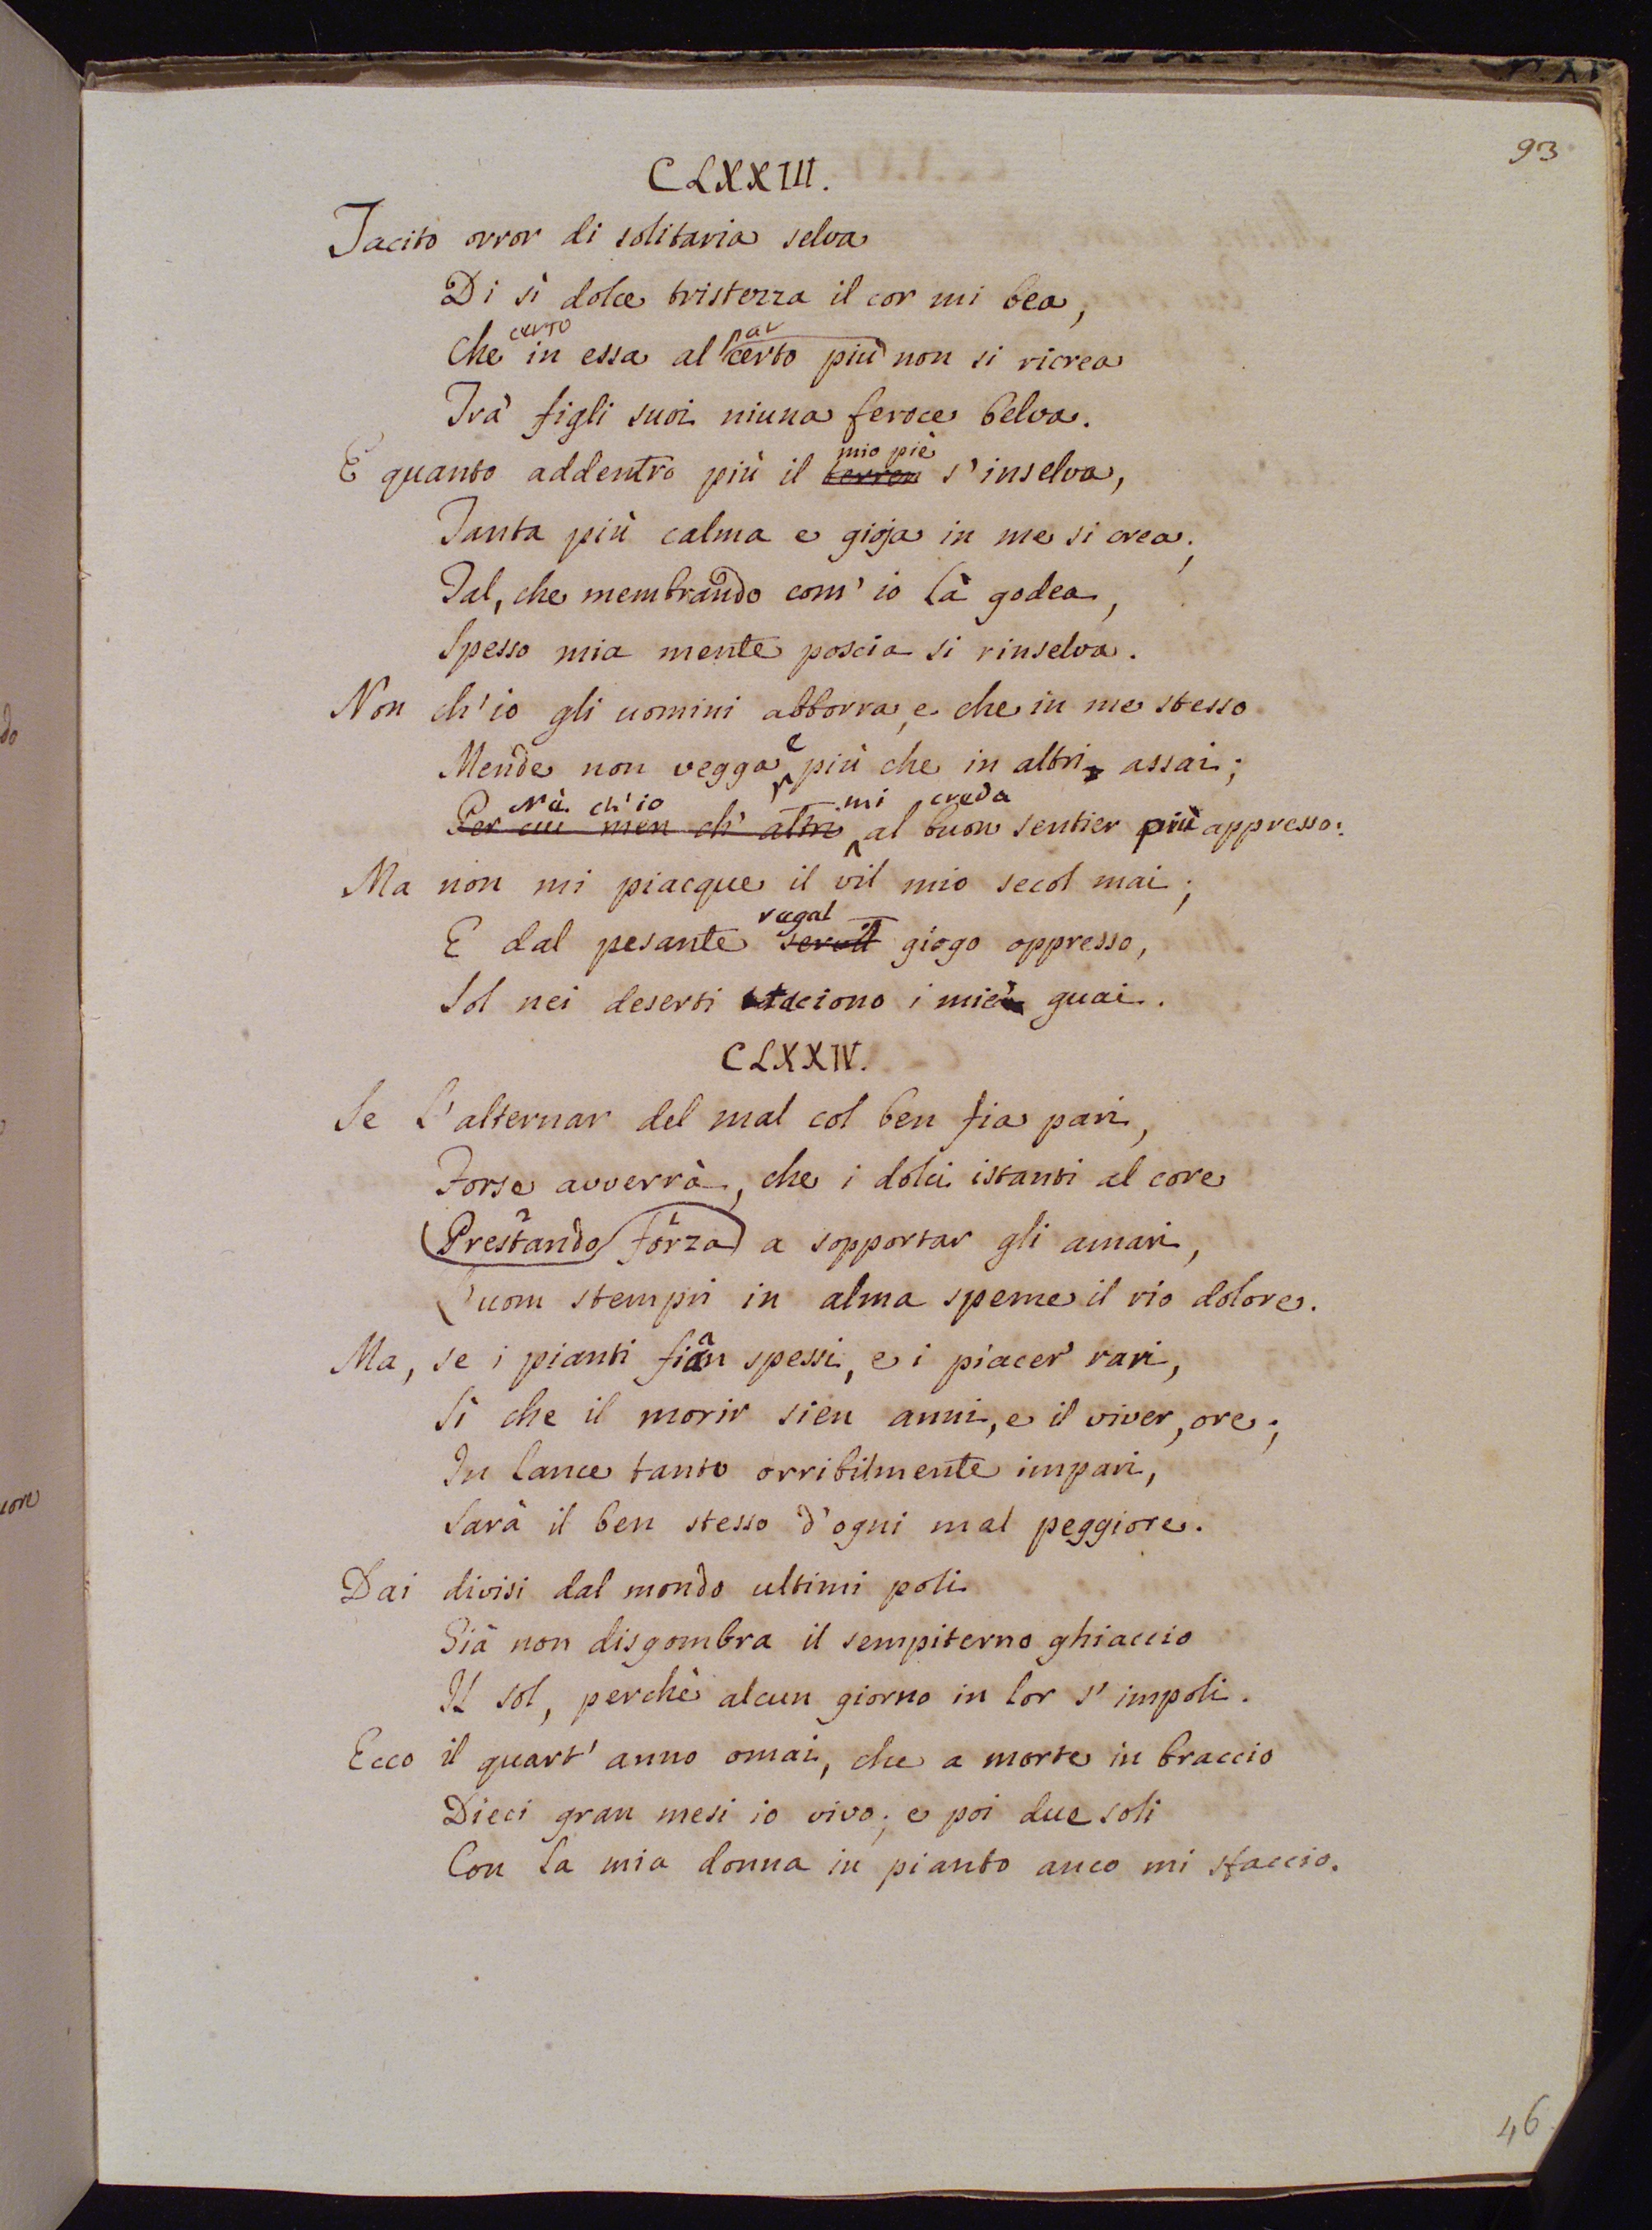 93
CLXXIII.
Tacito orror di solitaria selva
Di sì dolce tristezza il cor mi bea,
certo par
Che in essa al certo più non si ricrea
Trà figli suoi niuna feroce belva.
mio piè
E quanto addentro più il terren s'inselva,
Tanta più calma e gioja in me si crea;
Tal, che membrando com' io là godea,
Spesso mia mente poscia si rinselva.
Non ch'io gli uomini abborra, e che in me stesso
e
Mende non vegga più che in altri assai;
Nè ch'io mi creda
Per cui men ch' altri al buon sentier più appresso:
Ma non mi piacque il vil mio secol mai;
regal
E dal pesante servil giogo oppresso,
Sol nei deserti tacciono i miei guai.
CLXXIV.
Se l'alternar del mal col ben fia pari,
Forse avverrà, che i dolci istanti al core
2 1
Prestando forza a sopportar gli amari,
L'uom stempri in alma speme il rio dolore.
Ma, se i pianti fian spessi, e i piacer' rari,
Sì che il morir sien anni, e il viver, ore;
In lance tanto orribilmente impari,
Sarà il ben stesso d'ogni mal peggiore.
Dai divisi dal mondo ultimi poli
Già non disgombra il sempiterno ghiaccio
Il sol, perchè alcun giorno in lor s' impoli.
Ecco il quart' anno omai, che a morte in braccio
Dieci gran mesi io vivo; e poi due soli
Con la mia donna in pianto anco mi sfaccio.
46